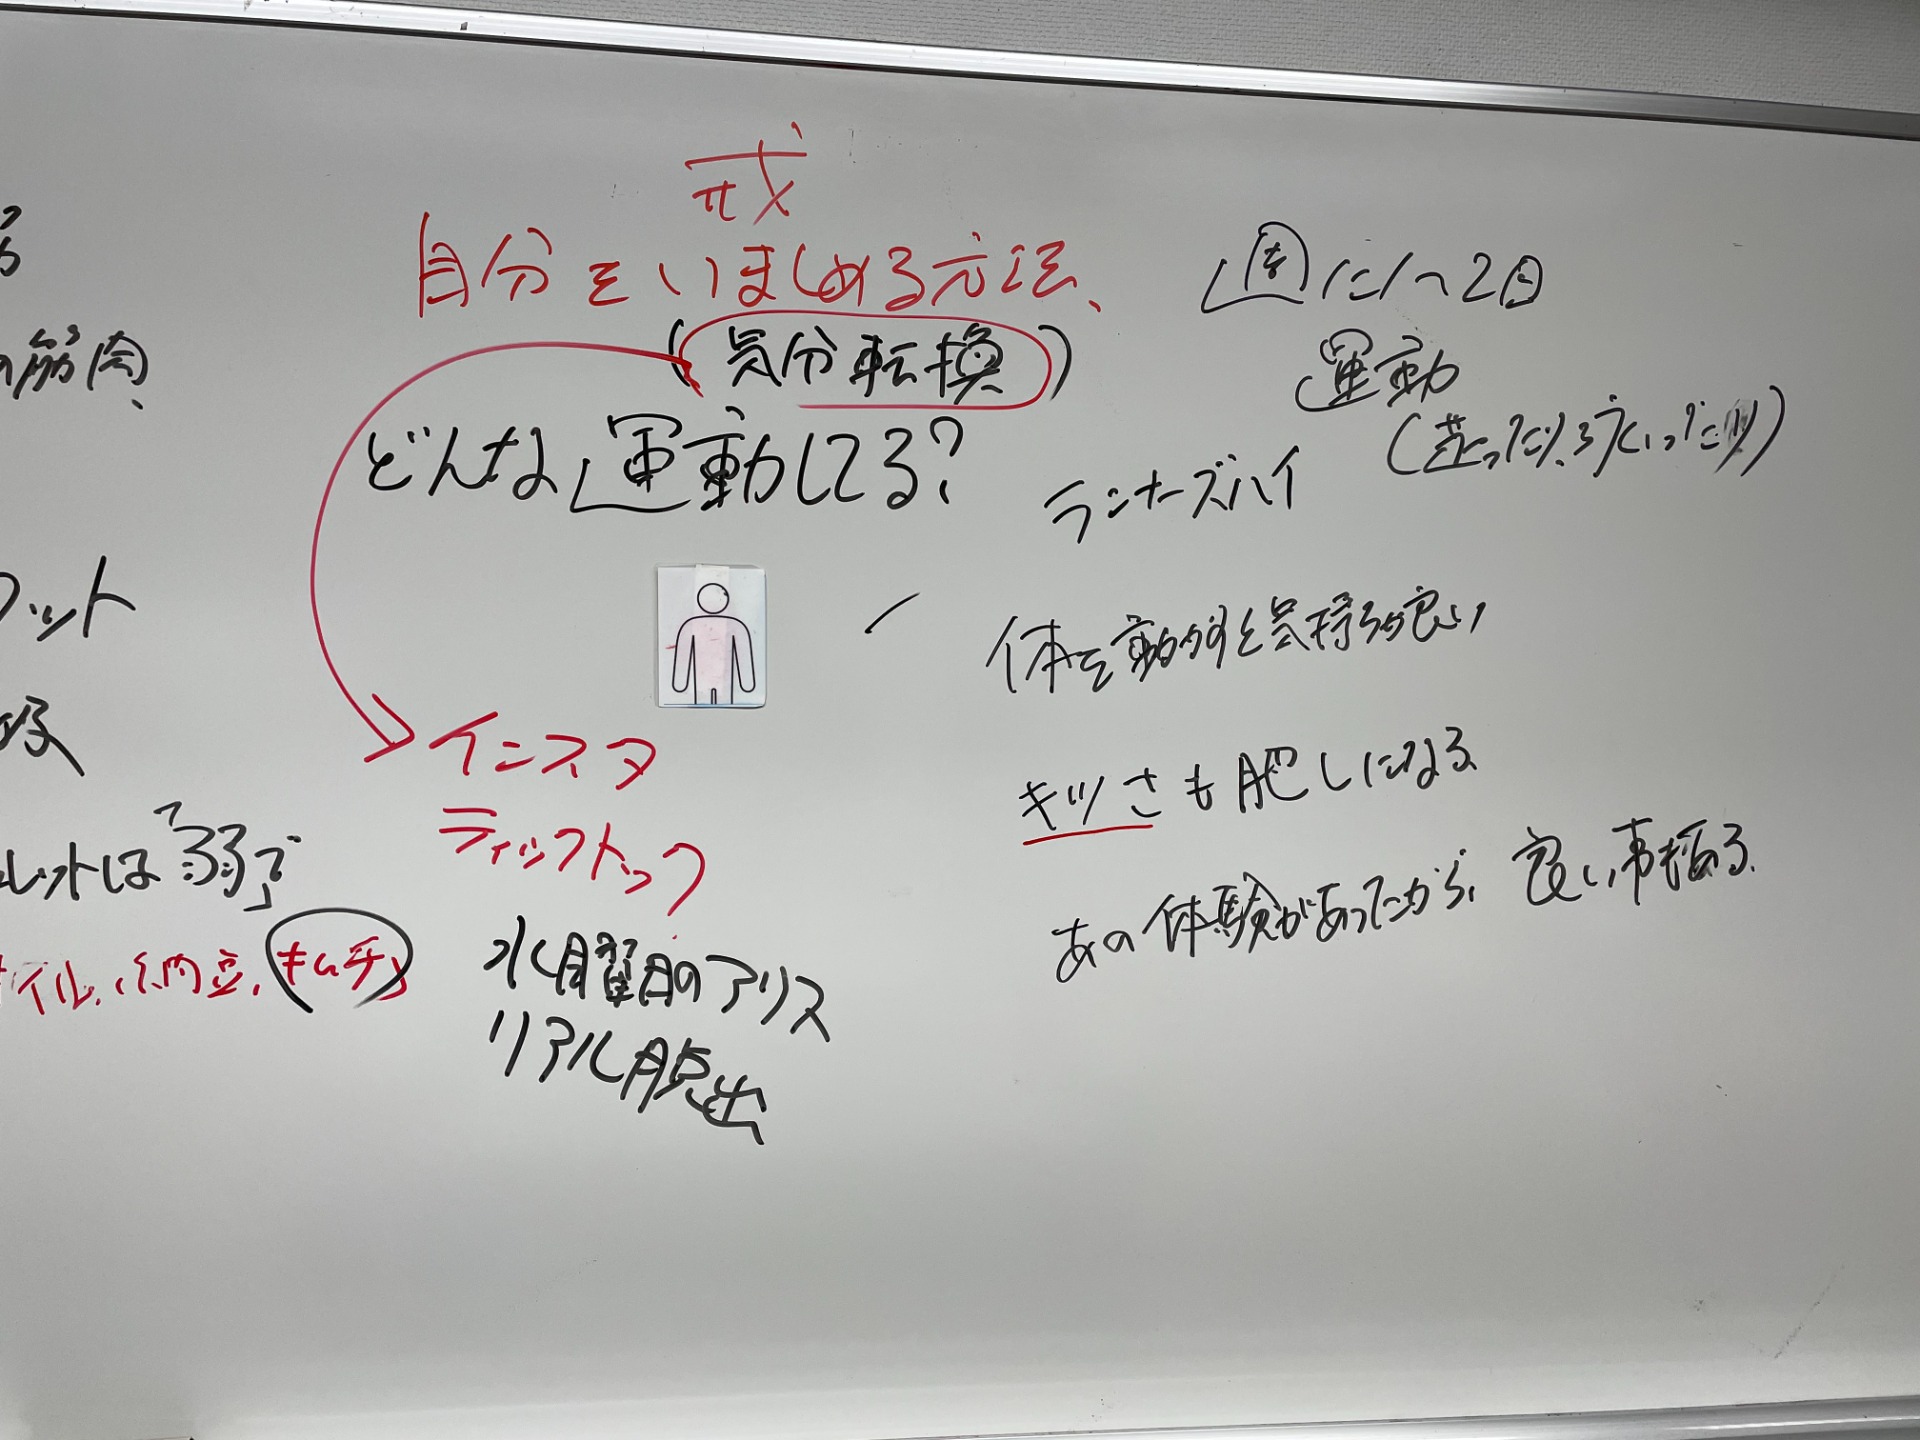 の筋肉
ット
レットは「弱」で
オイル、納豆、キムチ
戒
自分をいましめる方法、
(気分転換)
どんな運動してる?
インスタ
ティックトック
水曜日のアリス
リアル脱出
週に1〜2日
運動
(走ったり、歩いったり)
ランナーズハイ
体を動かすと気持ちが良い
キツさも肥しになる
あの体験があったから、良い事もある、